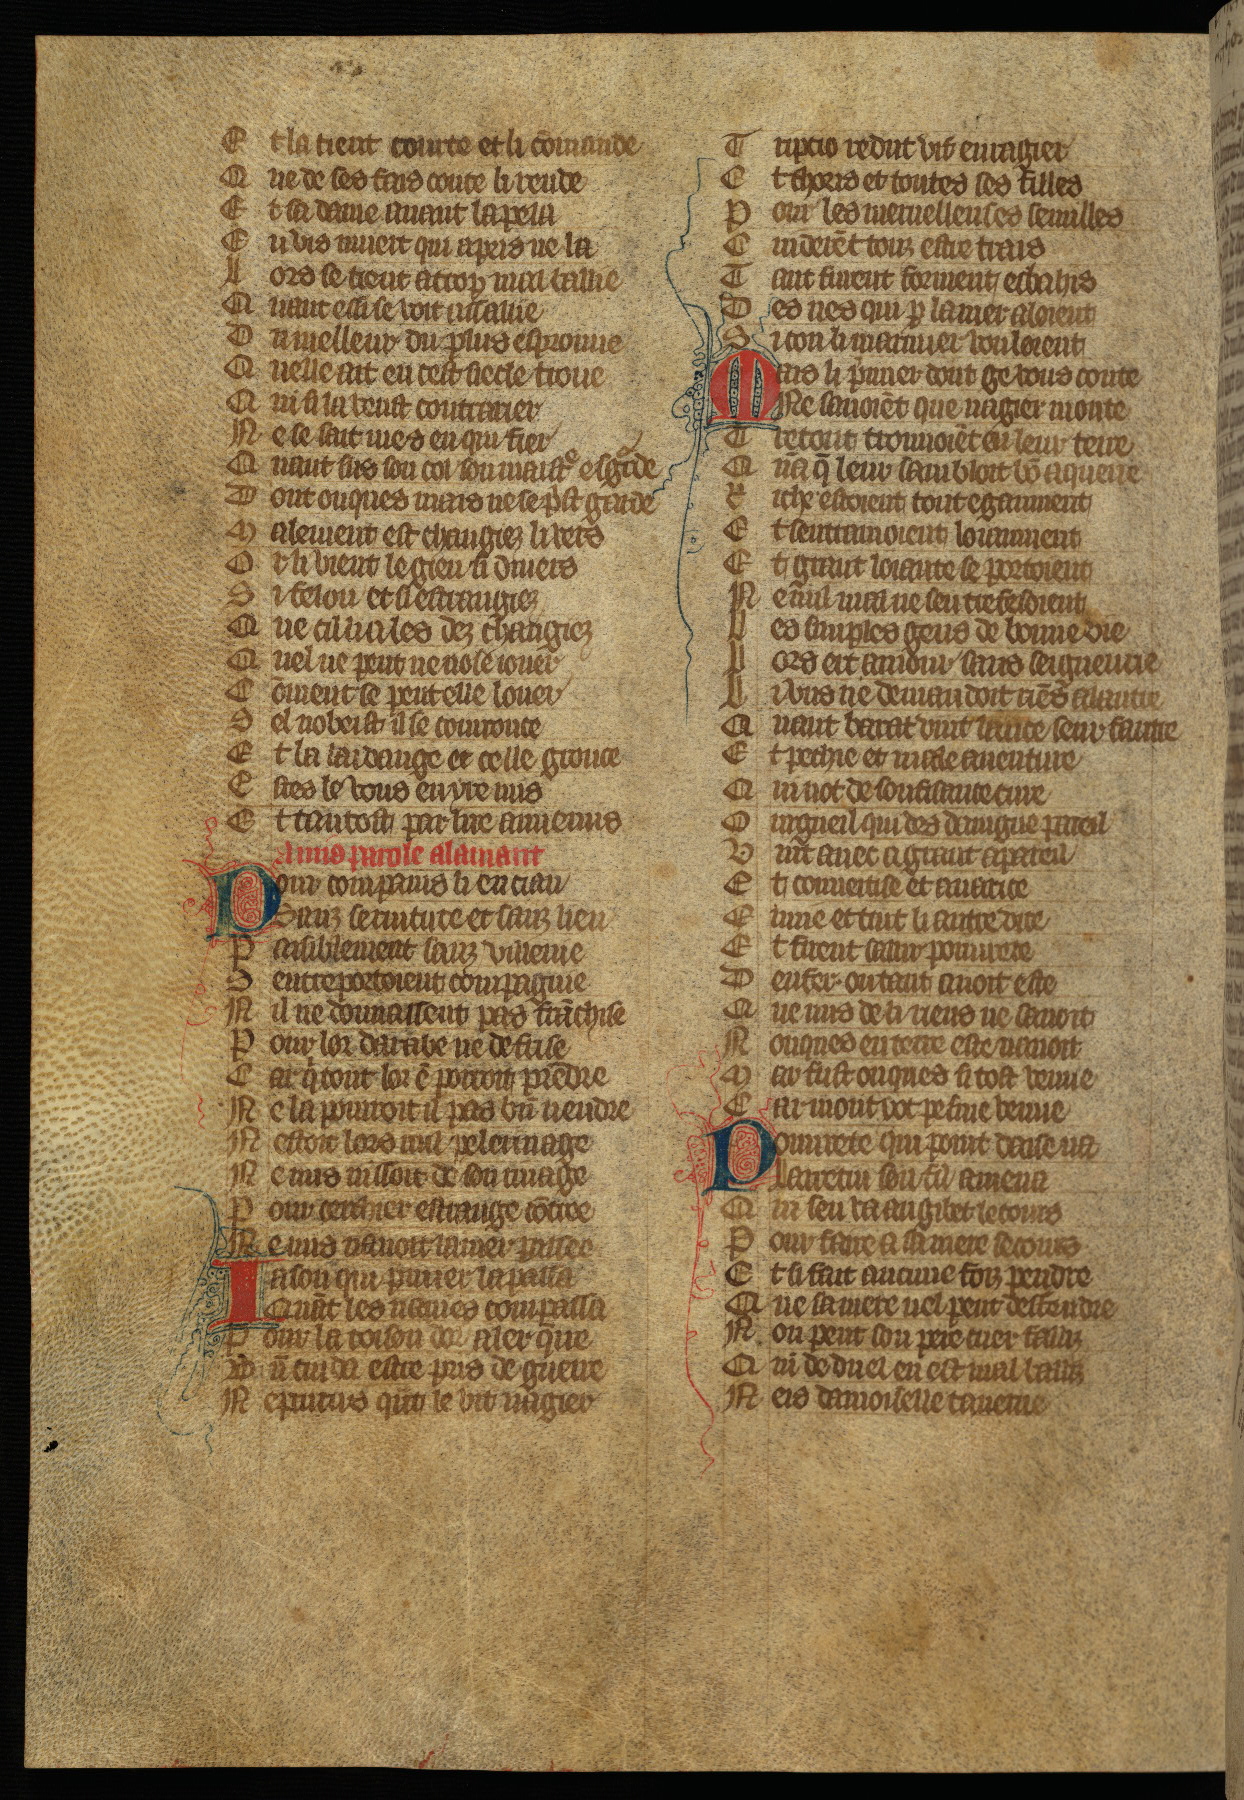 E t la tient courte et li cōmande
Q ue de ses fais conte li rende
E t sa dame auant lapela
C u vis muert qui apres ne la
L ors se tient atrop mal baillie
Quant elsi se voit assaillie
D u melleur du plus esprouue
Q uelle ait en cest siecle trouue
Q ui si la veust contrarier
N e se sait mes en qui fier
Quant sus son col son maistͤ esgͬde
D ont onques mais ne se pͥst garde
M alement est changiez li vers
O r li vient le gieu si diuers
S i felon et si estrangiez
Q ue cil li a les dez changiez
Q uel ne peut ne nose iouer
C ōment se peut elle louer
S el nobeist il se courouce
E t la laidange et celle grouce
E stes le vous en yre mis
E t tantost par lire annemis
Amis parole alamant
Pour compains li encian
Sanz seruitute et sanz lien
P aisiblement sanz vilenie
S entreportoient compagnie
N il ne donnassent pas frāchise
P our lor darabe ne de frise
C ar q̄ tout lor ē porroit prēdre
N e la pourroit il pas bn̄ uendre
N estoit lors nul pelerinage
N e nus nissoit de son riuage
P our cerchier estrange cōtree
N e nus nauoit la mer passee
Iason qui primier la passa
Quāt les nauies compassa
P our la toison dor aler q̄rre
B n̄ cuida estre pris de guerre
N eptunus quāt le vit nagier
T ripcio redut vif enragier
E t thoris et toutes ses filles
P our les merueilleuses semilles
C uiderēt touz estre trais
T ant furent forment esbahis
D es nes qui ꝑ la mer aloient
S i con li marinier vouloient
Mais li primer dont ge vous conte
Ne sauoiēt que nagier monte
T restout trouuoiēt en leur terre
Q ncͣ q̄ leur sambloit bō aquerre
R iche estoient tout egaument
E t sentramoient loiaument
E t grant loiaute se portoient
N e nul mal ne sentrefesoient
L es simples gens de bonne vie
L ors ert amour sans seigneurie
L i vns ne demandoit riēs alautre
Quant barat vint lance seur fautre
E t pechie et male auenture
Q ui not de soufisance cure
O rgueil qui des daingne pareil
V int auec a grant apareil
E t couuertise et auarice
E nuie et tuit li autre vice
E t firent saillir pourete
D enfer ou tant auoit este
Q ue nus de li riens ne sauoit
N onques en terre este nauoit
M ar fust onques si tost venue
C ar mont vot pesme venue
Pourete qui point daise na
Larrecin son filz amena
Q ui sen va au gibet le cours
P our faire a sa mere secours
E t si fait aucune foiz pendre
Que sa mere nel peut deffendre
N on peut son pere cuer failliz
Q ui de duel en est mal bailliz
N eis damoiselle tauerne